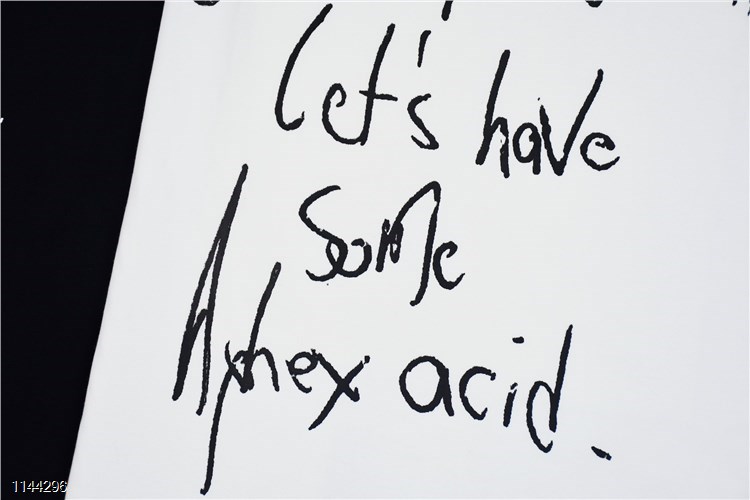 Let's have
Some
Aphex acid.
1144296